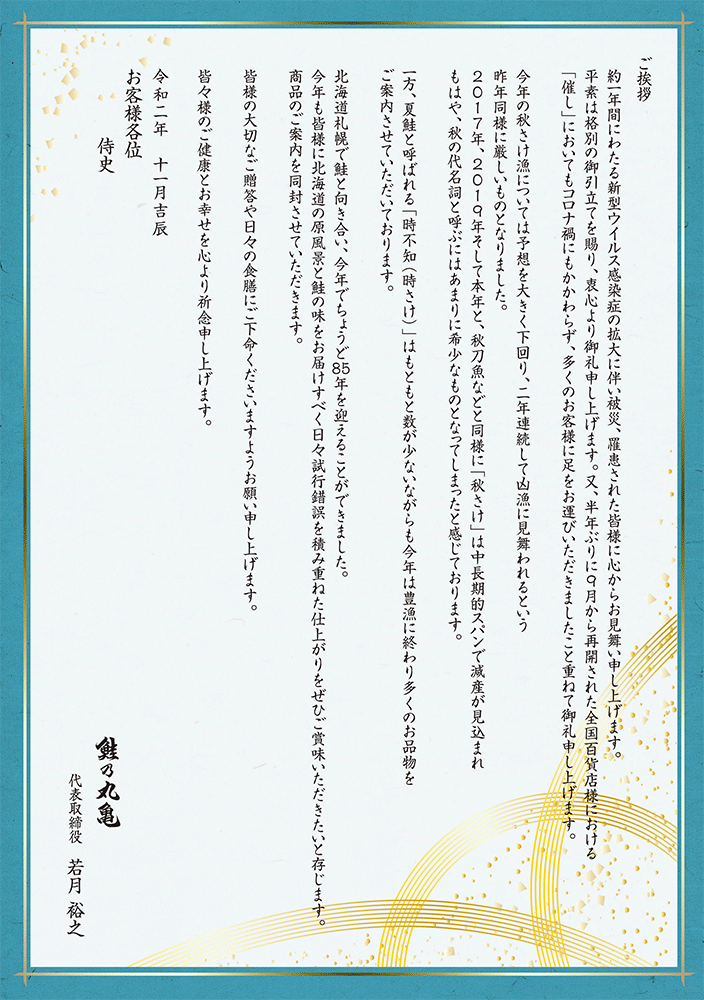 ご挨拶
約一年間にわたる新型ウイルス感染症の拡大に伴い被災、罹患された皆様に心からお見舞い申し上げます。
平素は格別の御引立てを賜り、衷心より御礼申し上げます。又、半年ぶりに9月から再開された全国百貨店様における
「催し」においてもコロナ禍にもかかわらず、多くのお客様に足をお運びいただきましたこと重ねて御礼申し上げます。
今年の秋さけ漁については予想を大きく下回り、二年連続して凶漁に見舞われるという
昨年同様に厳しいものとなりました。
2017年、2019年そして本年と、秋刀魚などと同様に「秋さけ」は中長期的スパンで減産が見込まれ
もはや、秋の代名詞と呼ぶにはあまりに希少なものとなってしまったと感じております。
一方、夏鮭と呼ばれる「時不知（時さけ）」はもともと数が少ないながらも今年は豊漁に終わり多くのお品物を
ご案内させていただいております。
北海道札幌で鮭と向き合い、今年でちょうど85年を迎えることができました。
今年も皆様に北海道の原風景と鮭の味をお届けすべく日々試行錯誤を積み重ねた仕上がりをぜひご賞味いただきたいと存じます。
商品のご案内を同封させていただきます。
皆様の大切なご贈答や日々の食膳にご下命くださいますようお願い申し上げます。
皆々様のご健康とお幸せを心より祈念申し上げます。
令和二年　十一月吉辰
お客様各位
侍史
鮭乃丸亀
代表取締役　若月 裕之